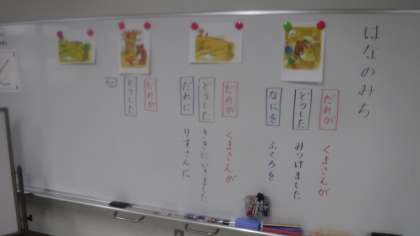 はなのみち
だれが くまさんが
どうした みつけました
なにを ふくろを
だれが くまさんが
どうした ききにいきました
だれに りすさんに
だれが
どうした